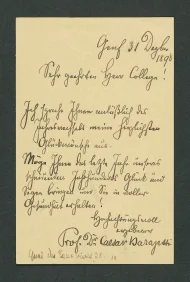 Genf 31 Dezbr
1898
Sehr geehrter Herr College!
Ich spreche Ihnen anläßlich des
Jahreswechsels meine herzlichsten
Glückwünsche aus.
Möge Ihnen das letzte Jahr unseres
scheidenden Jahrhunderts Glück und
Segen bringen und Sie in voller
Gesundheit erhalten!
Hochachtungsvoll
ergebener
Prof. Dr. Caesar